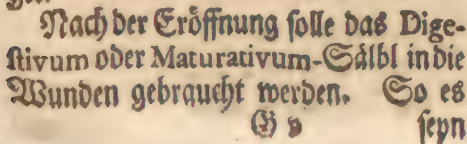 Nach der Eröffnung solle das Dige-
stivum oder Maturativum-Sälbl in die
Wunden gebraucht werden. So es
seyn